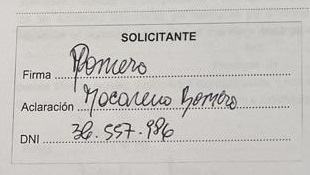 SOLICITANTE
Firma Romero
Aclaración Macarena Romero
DNI 36.557.986